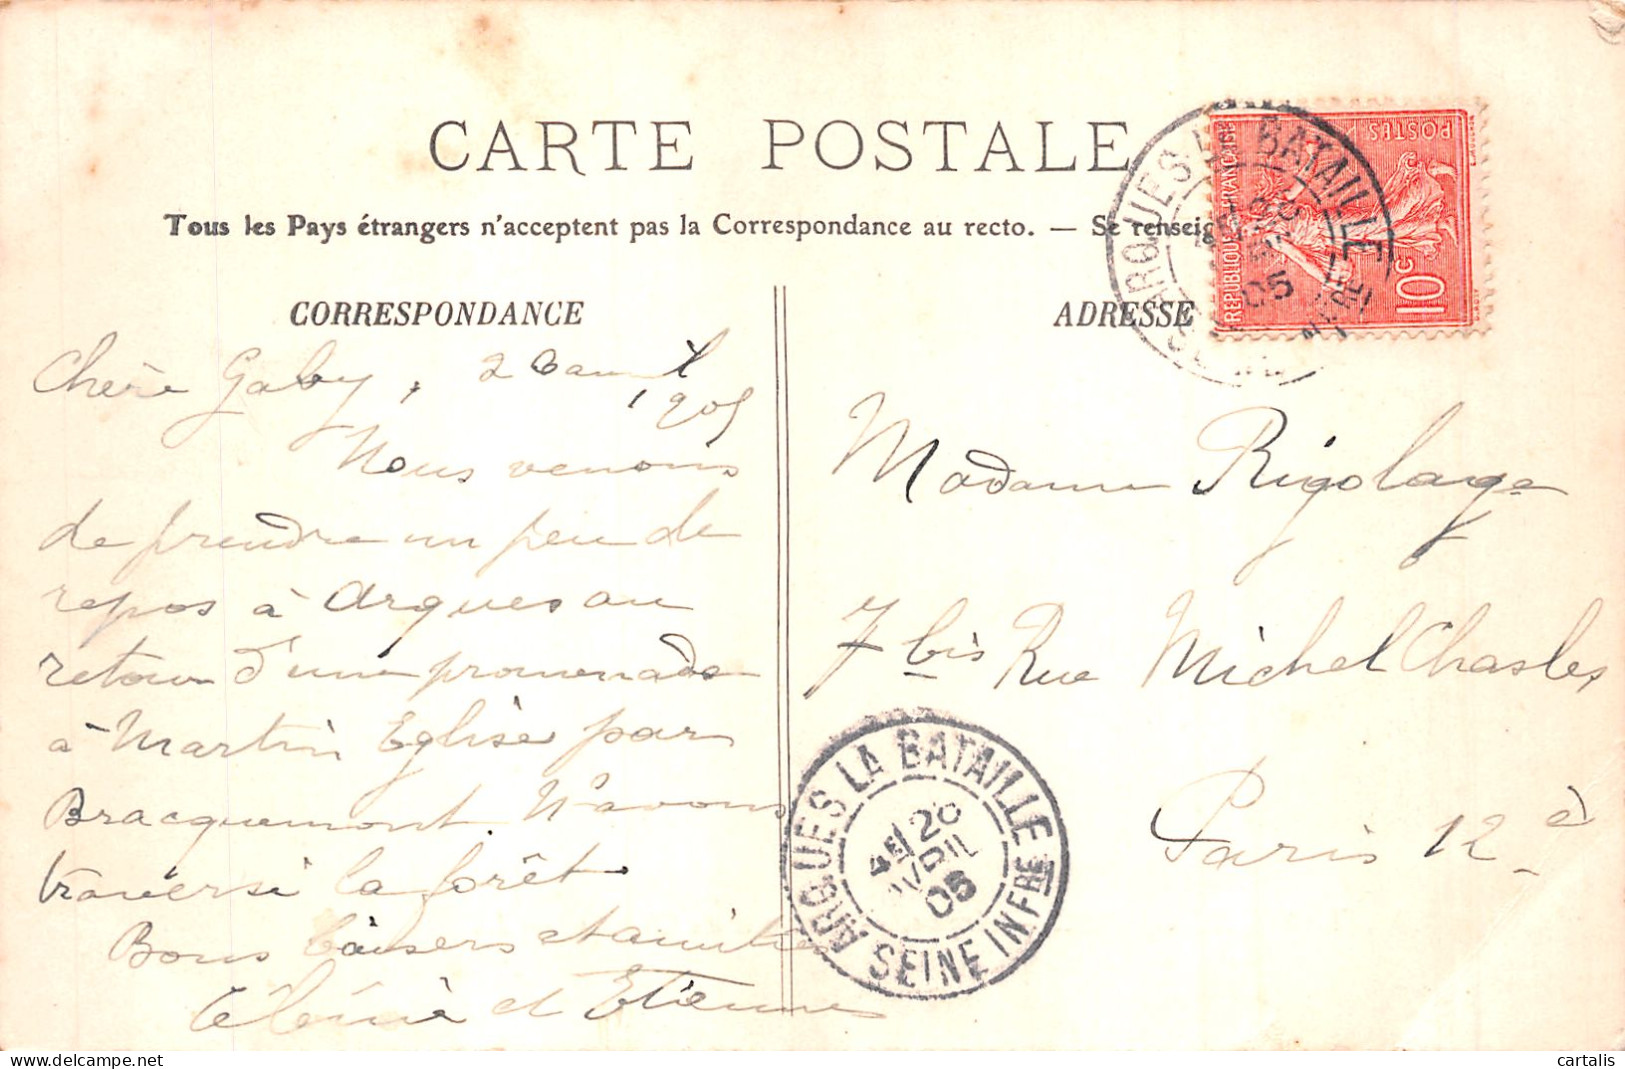 CARTE POSTALE
Tous les Pays étrangers n'acceptent pas la Correspondance au recto. — Se renseig
CORRESPONDANCE
Chère Gaby, 20 avril
1905
Nous venons
de prendre un peu de
repos à Arques au
retour d'une promenade
à Martin Eglise par
Bracquemont. N avons
traversé la forêt.
Bons baisers et amitiés
et Etienne
ADRESSE
Madame Rigolage
7 bis Rue Michel Chasles
Paris 12 è
ARQUES LA BATAILLE
20
AVRIL
05
SEINE INFRE
ARQUES-LA BATAILLE
05
REPUBLIQUE FRANÇAISE
POSTES
10c
delcampe.net
cartalis